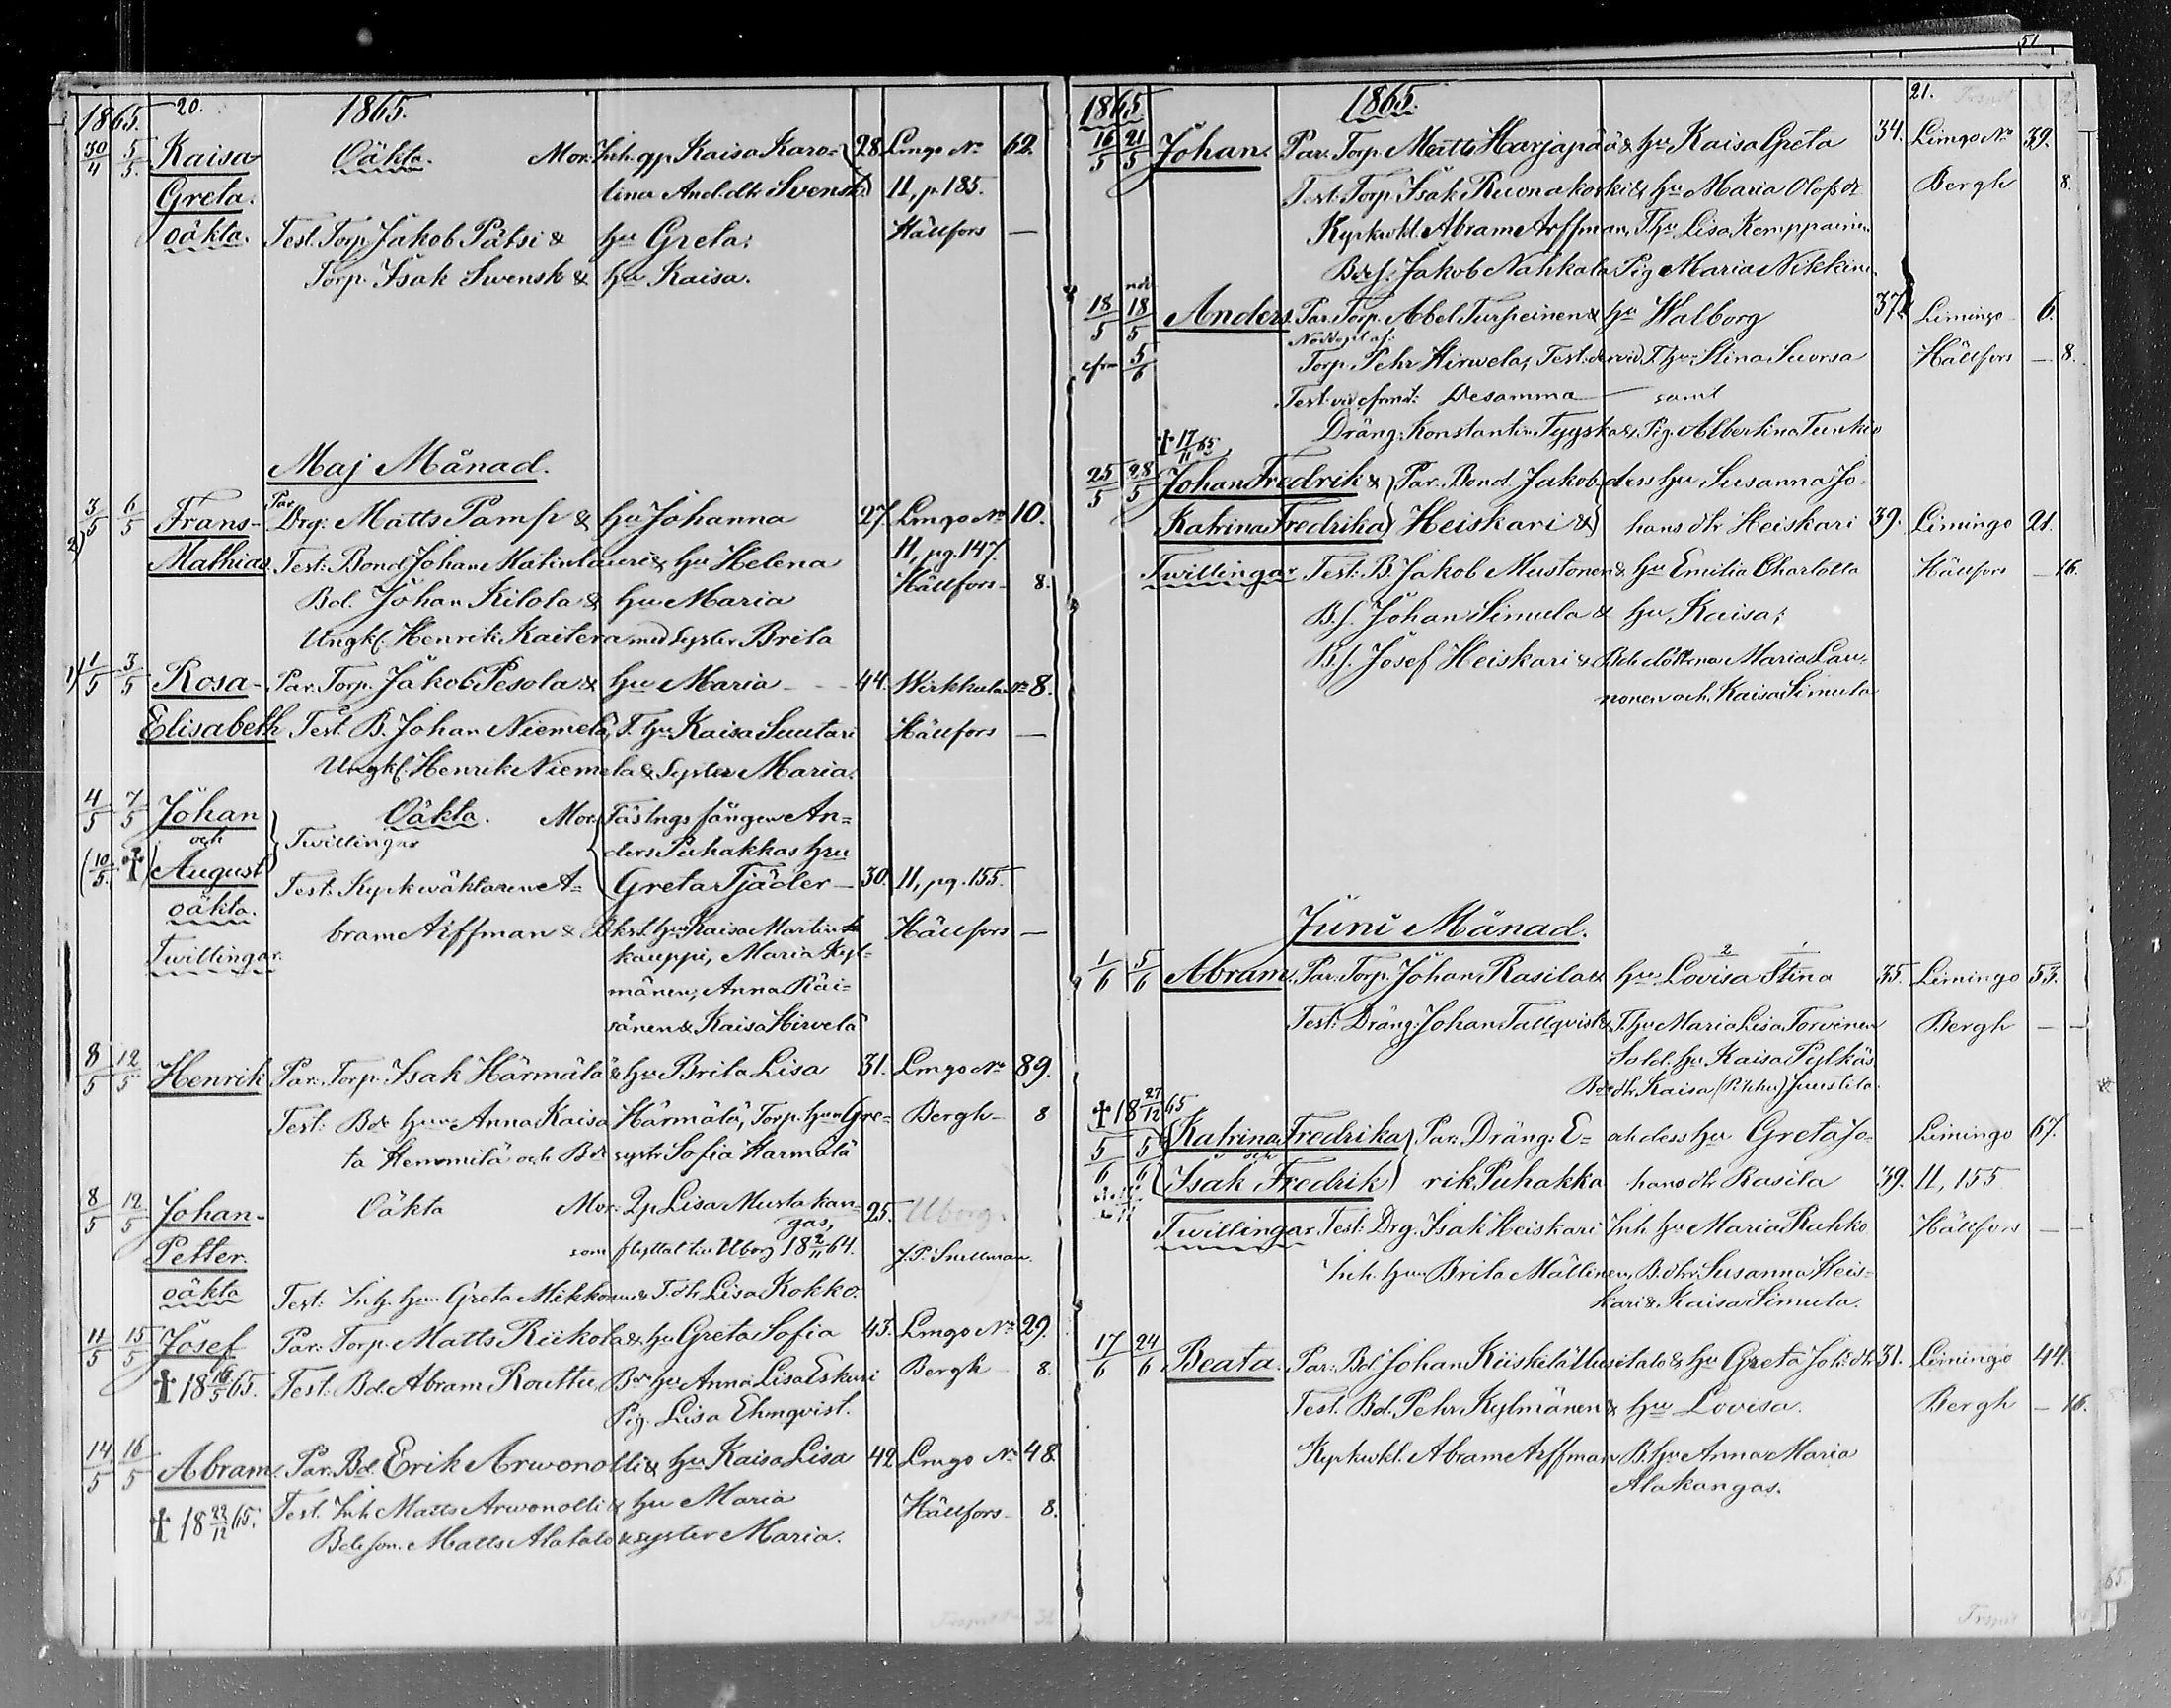 51
20.
1865. 1865.
30/4 5/5 Kaisa Oäkta. Mor: Inh. qp Kaisa Karo= 28. Lmgo No 62.
Greta. lina And.dtr Svensk. II, p. 185.
oäkta. Test. Torp. Jakob Pätsi & hu Greta; Hällfors —
Torp. Isak Swensk & hu Kaisa.
Maj Månad.
3/5 6/5 Frans- Par. Drg: Matts Pamp & hu Johanna 27. Lmgo No 10.
2) Mathias. Test: Bond Johan Matinlauri & hu Helena II, pg. 147.
Bd. Johan Kilola & hu Maria Hällfors - 8.
Ungk. Henrik Kaitera med syster Brita
1) 1/5 3/5 Rosa- Par. Torp. Jakob Pesola & hu Maria - - - 44. Wirkkula No 8.
Elisabeth Test. B. Johan Niemelä, T. hu Kaisa Suutari Hällfors —
Ungk. Henrik Niemelä & Syster Maria.
4/5 7/5 Johan Oäkta. Mor: Fästngs fången An=
och Twillingar ders Puhakkas hu
(10/5 †) August Test. Kyrkwäktaren A= Greta Tjäder — 30. II, pg. 155.
oäkta. bram Arffman & hu Kaisa Martin Hällfors —
Twillingar. kauppi, Maria Kyl=
mänen, Anna Räi=
sänen & Kaisa Hirvelä
8/5 12/5 Henrik Par: Torp. Isak Härmälä & hu Brita Lisa 31. Lmgo No 89.
Test: Bde hun Anna Kaisa Härmälä, Torp. hun Gre= Bergh - 8
ta Hemmilä och Bde syst. Sofia Härmälä
8/5 12/5 Johan- Oäkta Mor: Qp Lisa Mustakan= 25. Uborg.
Petter. gas,
som flyttat till Uborg 18 2/11 64. J. P. Snellman.
oäkta Test: Inh. hun Greta Mikkonen & T. dtr Lisa Kokko.
11/5 15/5 Josef Par: Torp. Matts Riikola & hu Greta Sofia 43. Lmgo No 29.
† 18 16/5 65. Test: Bd. Abram Routtu, Bde hu Anna Lisa Eskuri Bergh 8.
Pig. Lisa Ehmqvist.
14/5 16/5 Abram. Par. Bd. Erik Arwonolli & hu Kaisa Lisa 42 Lmgo No 48
† 18 22/12 65. Test. Inh Matts Arwonolli & hu Maria Hällfors - 8.
Bde son. Matts Alatalo & syster Maria.
1865 1865. 21.
16/5 21/5 Johan. Par. Torp. Matts Harjapää & hu Kaisa Greta 34. Limgo No 39.
Test: Torp. Isak Ruonakoski & hu Maria Olofsdr Bergh 8.
Kyrkwkt. Abram Arffman, T hu Lisa Kemppainen
Bdes. Jakob Nahkala Pig Maria Nikkinen
nöd
18/5 18/5 Anders. Par. Torp. Abel Turpeinen & hu Walborg 37. Limingo 6.
Nöddöpt af:
cfm 5/6 Torp. Pehr Hirwelä, Test: dervid T. hu Stina Suorsa Hällfors — 8.
Test: vid cfmat: Desamma — samt
Dräng: Konstantin Tyyskä & Pig Albertina Tunkio
† 17/11 65
25/5 28/5 Johan Fredrik & Par. Bond. Jakob dess hu Susanna Jo=
Katrina Fredrika Heiskari & hans dtr Heiskari 39. Limingo 21.
Twillingar Test: B. Jakob Mustonen & hu Emilia Charlotta Hällfors — 16.
B.s. Johan Simula & hu Kaisa;
B.s. Josef Heiskari & Bde döttrar Maria Lau=
nonen och Kaisa Simula
Juni Månad.
2 1
1/6 5/6 Abram. Par. Torp. Johan Rasila & hu Lovisa Stina 35. Limingo 53.
Test: Dräng: Johan Tallqvist & T. hu Maria Lisa Torvinen Bergh — —
Sold. hu Kaisa Pylkäs
Bde dtr Kaisa (Pikku) Juustila
† 18 27/12 65
5/6 5/6 Katrina Fredrika Par: Dräng: E= och dess hu Greta Jo= Limingo 67.
och
Isak Fredrik rik Puhakka hans dtr Rasila 39. II, 155
Twillingar. Test: Drg. Isak Heiskari Inh. hu Maria Rahko Hällfors — —
Inh. hu Brita Mällinen, B. dtr Susanna Heis=
kari & Kaisa Simula.
17/6 24/6 Beata. Par: Bd. Johan Kiiskilä & hu Greta Joh. dtr 31. Limingo 44.
Test. Bd. Pehr Kylmänen & hu Lovisa. Bergh — 16.
Kyrkwkt. Abram Arffman B. hu Anna Maria
Alakangas.